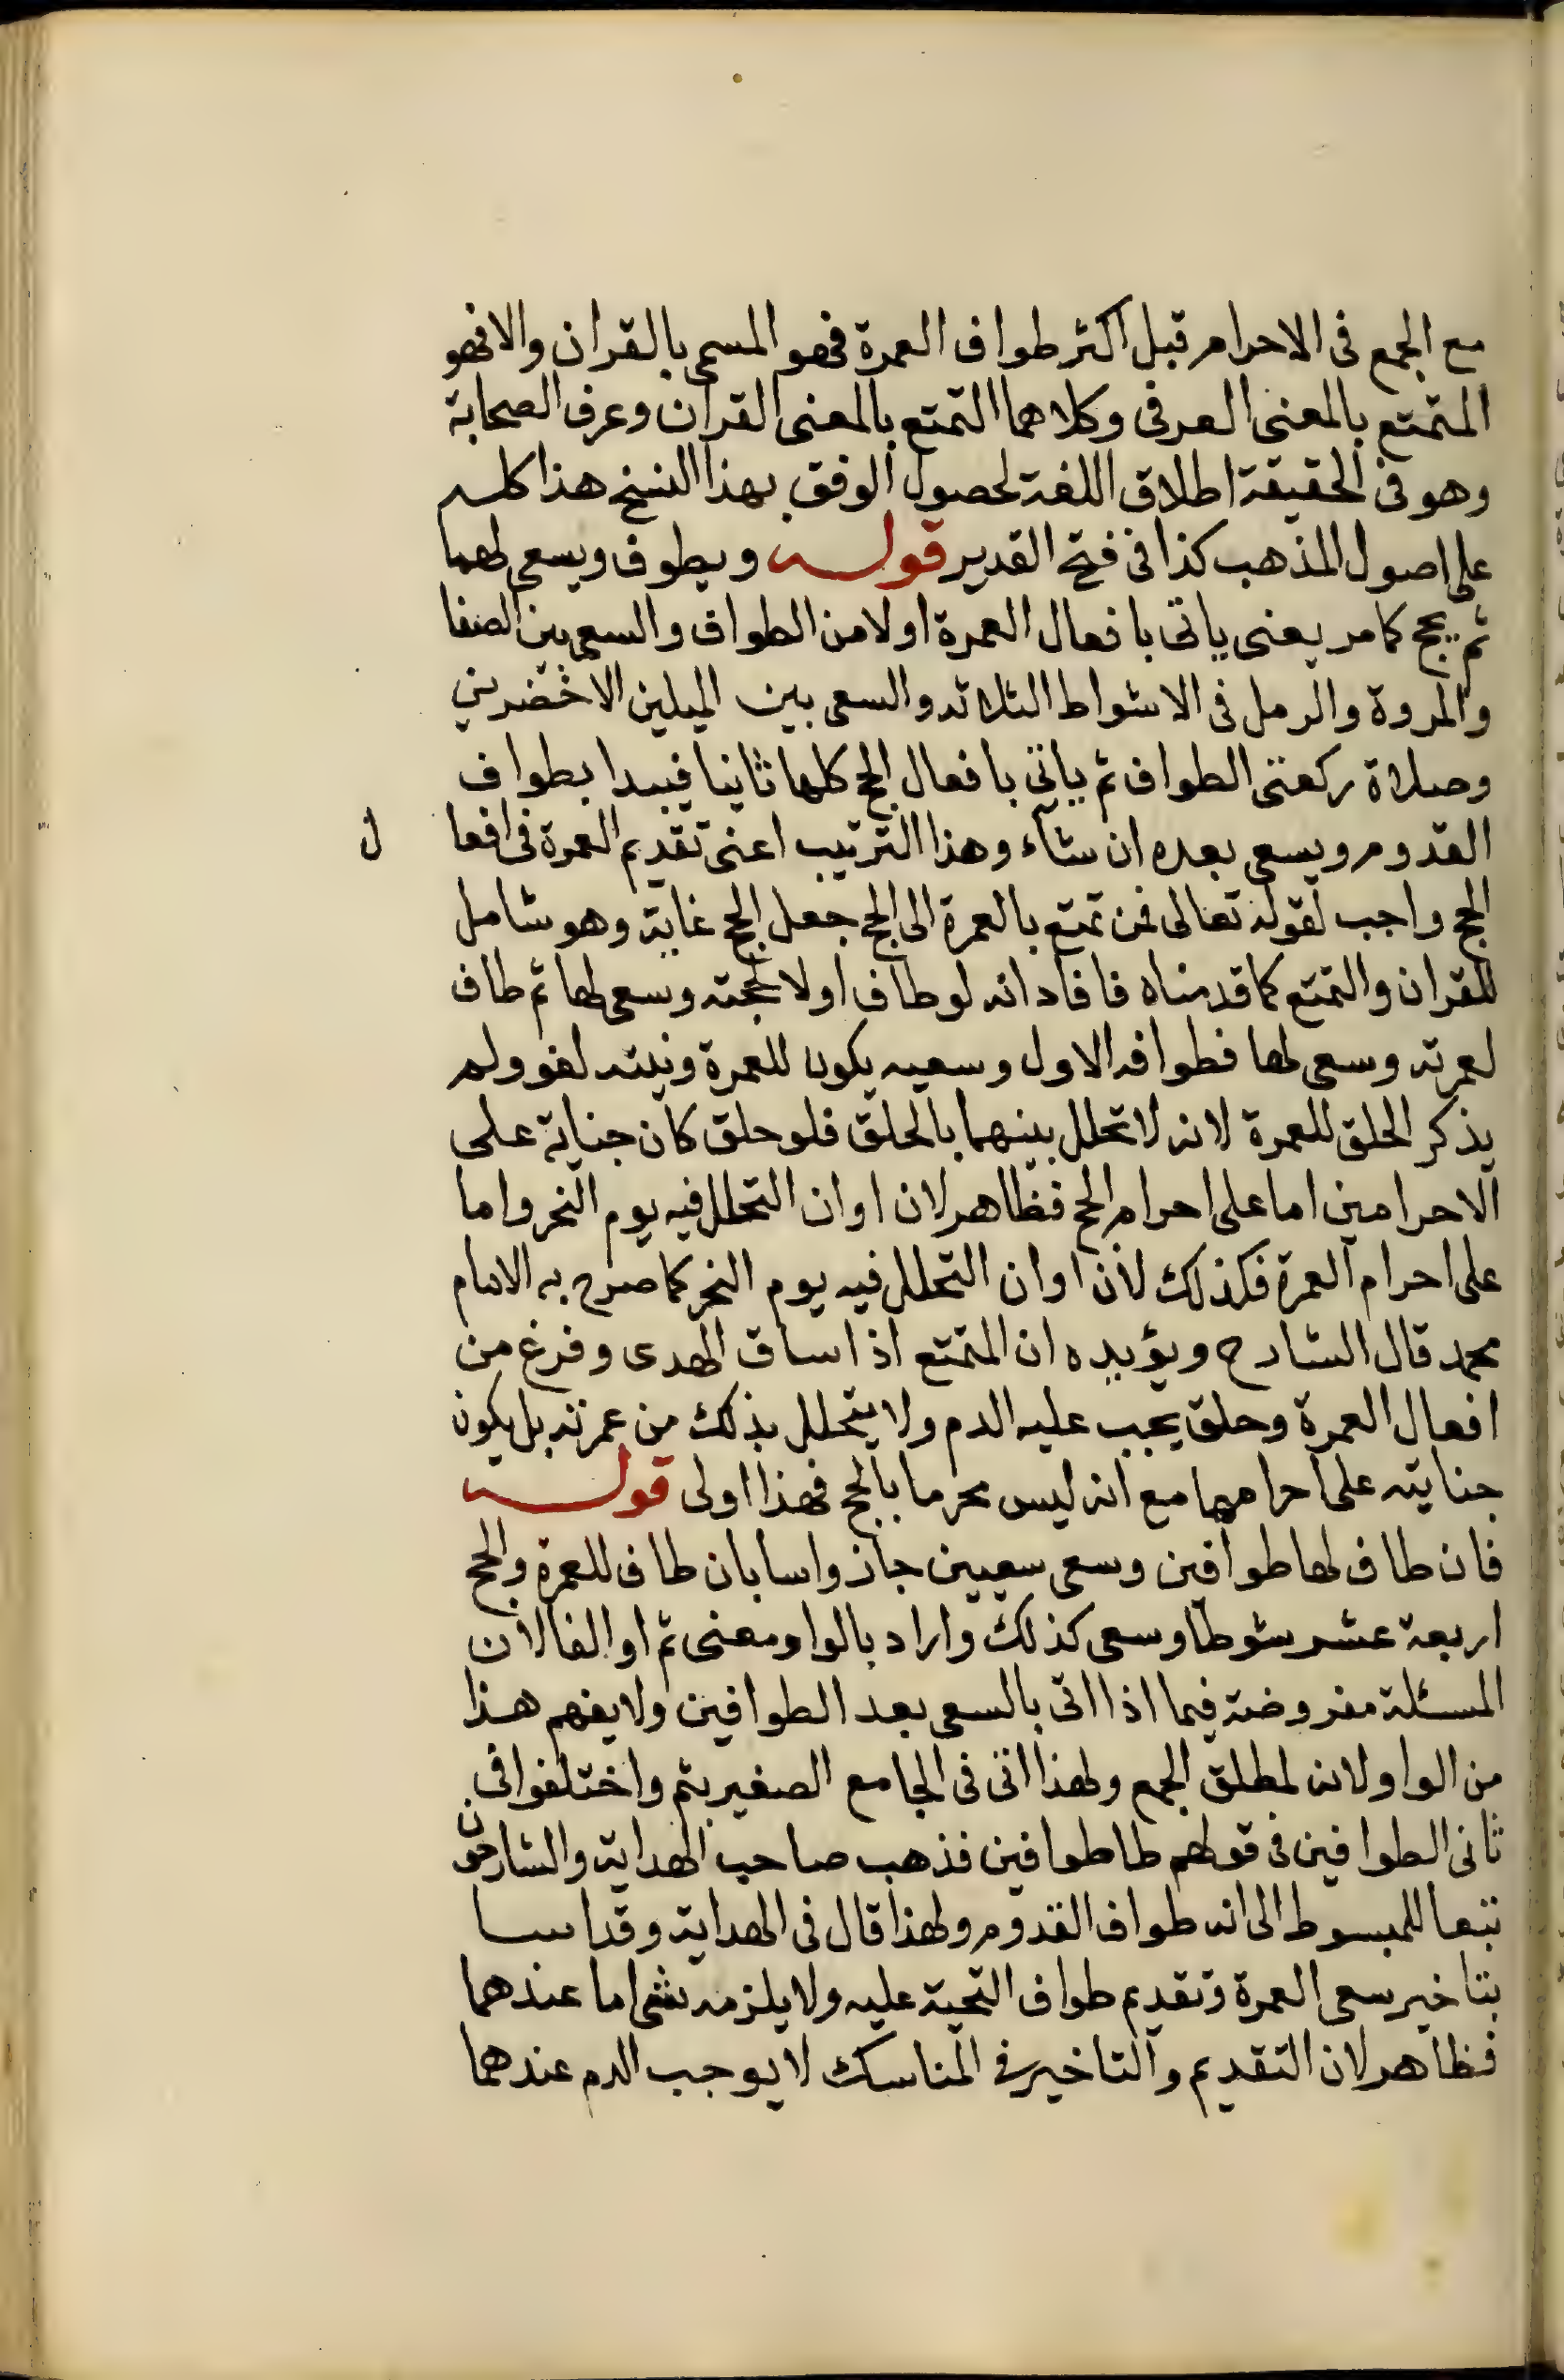 مع الجمع فى الاحرام قبل اكثر طواف العمرة فهو المسمى بالقران والا فهو
المتمتع بالمعنى العرفى وكلاهما التمتع بالمعنى القرآن وعرف الصحابة
وهو فى الحقيقة اطلاق اللغة لحصول الوفق بهذا النسخ هذا كله
على اصول المذهب كذا فى فتح القدير قوله ويطوف ويسعى لهما
ثم يحج كما مر يعنى ياتى بافعال العمرة اولا من الطواف والسعى بين الصفا
والمروة والرمل فى الاشواط الثلاثه والسعى بين الميلين الاخضرين
وصلاة ركعتى الطواف ثم ياتى بافعال الحج كلها ثانيا فيبدا بطواف
القدوم ويسعى بعده ان شآء وهذا الترتيب اعنى تقديم العمرة فى افعا ل
الحج واجب لقوله تعالى فمن تمتع بالعمرة الى الحج جعل الحج غاية وهو شامل
للقران والتمتع كما قدمناه فافاد انه لو طاف اولا لحجته وسعى لها ثم طاف
لعمرته وسعى لها فطوافه الاول وسعيه يكون للعمرة ونيته لغو ولم
يذكر الحلق للعمرة لانه لا تحلل بينهما بالحلق فلو حلق كان جناية على
الاحرامين اما على احرام الحج فظاهر لان اوان التحلل فيه يوم النحر واما
على احرام العمرة فكذلك لان اوان التحلل فيه يوم النحر كما صرح به الامام
محمد قال الشارح ويؤيده ان المتمتع اذا ساق الهدى وفرغ من
افعال العمرة وحلق يجب عليه الدم ولا يتحلل بذلك من عمرته بل يكون
جنايته على احرامهما مع انه ليس محرما بالحج فهذا اولى قوله
فان طاف لهما طوافين وسعى سعيين جاز واسا بان طاف للعمرة والحج
اربعة عشر شوطا وسعى كذلك واراد بالواو معنى ثم او الفا لان
المسئلة مفروضة فيما اذا اتى بالسعى بعد الطوافين ولا يفهم هذا
من الواو لانه لمطلق الجمع ولهذا اتى فى الجامع الصغير بثم واختلفوا فى
ثانى الطوافين فى قولهم طا طوافين فذهب صاحب الهداية والشارحون
تبعا للمبسوط الى انه طواف القدوم ولهذا قال فى الهداية وقد اسا
بتاخير سعى العمرة وتقديم طواف التحية عليه ولا يلزمه شى اما عندهما
فظاهر لان التقديم والتاخير فى المناسك لا يوجب الدم عندهما